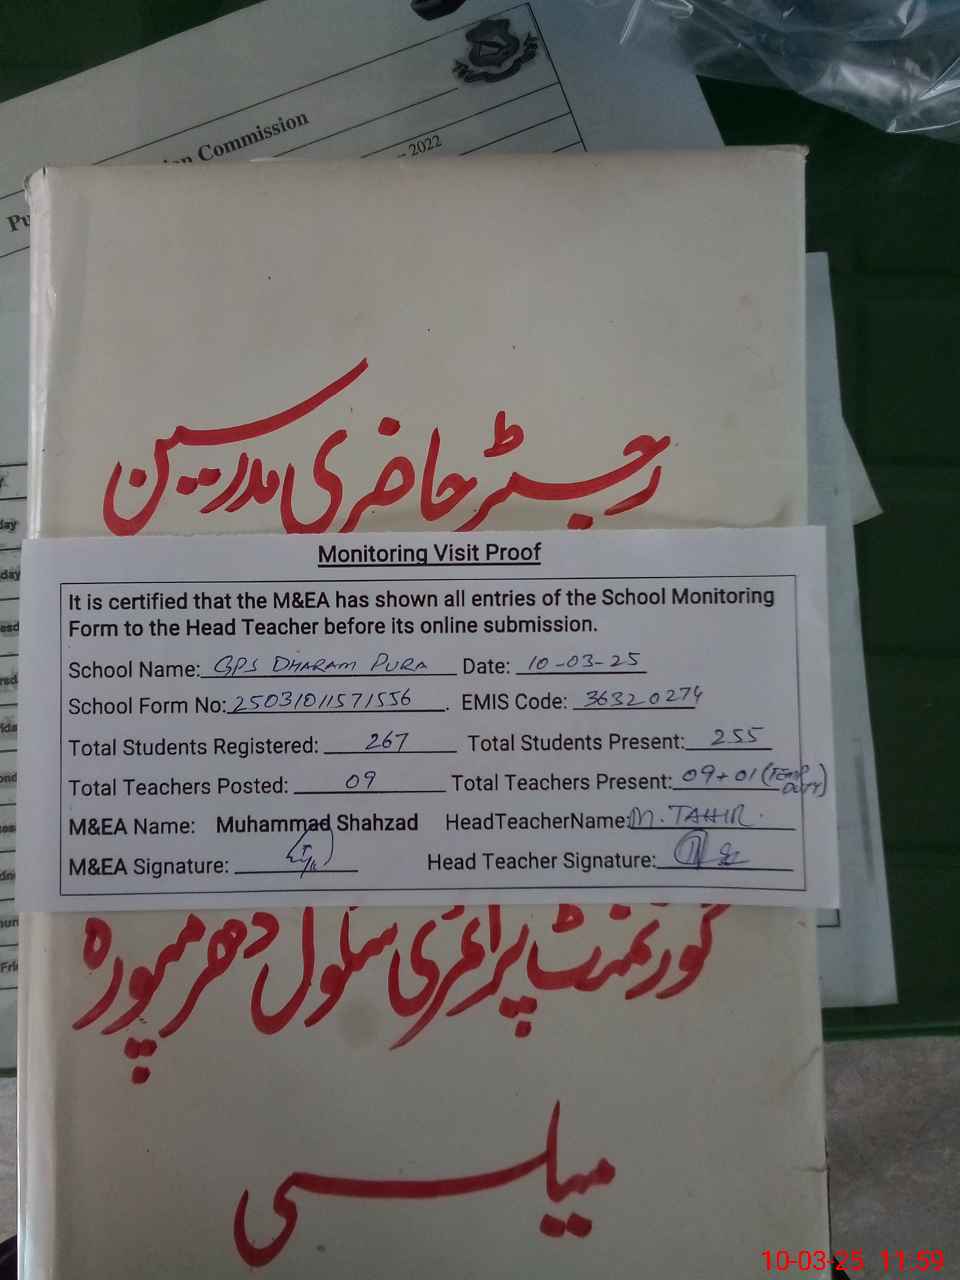 on Commission
2022
رجسٹر حاضری مدرسین
Monitoring Visit Proof
It is certified that the M&EA has shown all entries of the School Monitoring
Form to the Head Teacher before its online submission.
School Name: GPS DHARAM PURA Date: 10-03-25
School Form No: 25031011571556. EMIS Code: 36320274
Total Students Registered: 267 Total Students Present: 255
Total Teachers Posted: 09 Total Teachers Present: 09+01 (TEMP DUTY)
M&EA Name: Muhammad Shahzad HeadTeacherName: M. TAHIR.
M&EA Signature: Head Teacher Signature:
گورنمنٹ پرائمری سکول دھرمپورہ
میلسی
10-03-25 11:59